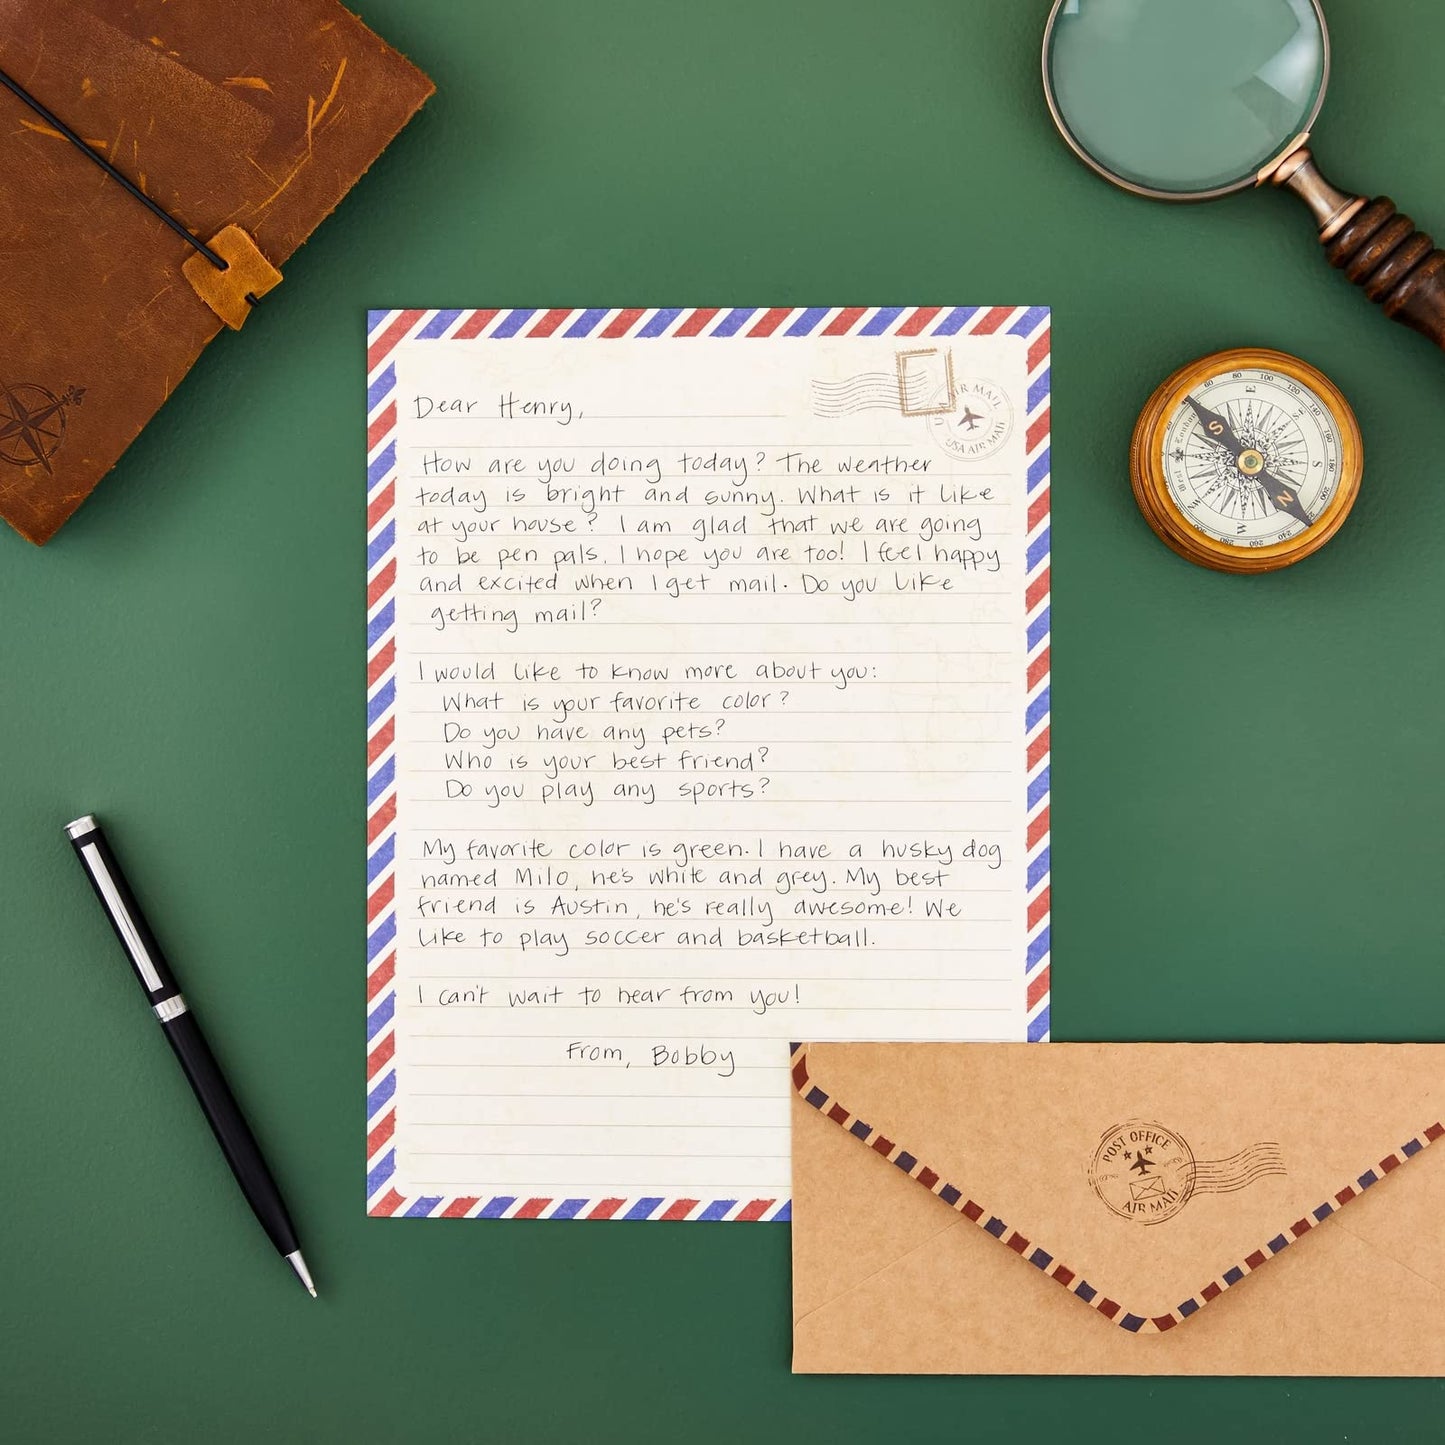 Dear Henry,
How are you doing today? The weather
today is bright and sunny. What is it like
at your house? I am glad that we are going
to be pen pals. I hope you are too! I feel happy
and excited when I get mail. Do you like
getting mail?
I would like to know more about you:
What is your favorite color?
Do you have any pets?
Who is your best friend?
Do you play any sports?
My favorite color is green. I have a husky dog
named Milo, he's white and grey. My best
friend is Austin, he's really awesome! We
like to play soccer and basketball.
I can't wait to hear from you!
From, Bobby
AIR MAIL
USA AIR MAIL
S
N
E
S
W
NW
London
60 80 100 120 140 160 180 200 260 280
POST OFFICE
AIR MAIL